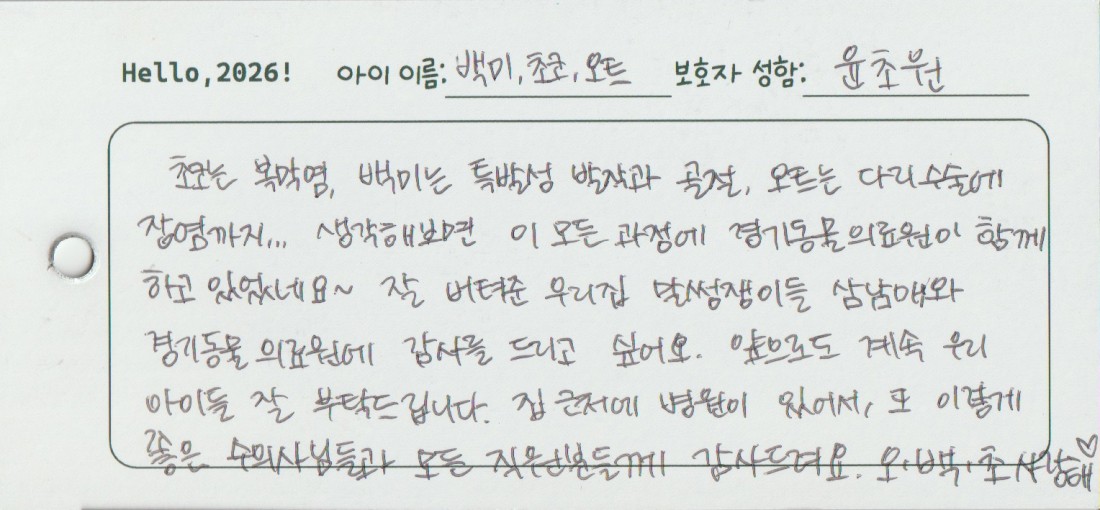 Hello, 2026! 아이 이름: 백미, 초코, 오트 보호자 성함: 윤초원
초코는 복막염, 백미는 특발성 발작과 골절, 오트는 다리수술에
장염까지... 생각해보면 이 모든 과정에 경기동물의료원이 함께
하고 있었네요~ 잘 버텨준 우리집 말썽쟁이들 삼남매와
경기동물의료원에 감사를 드리고 싶어요. 앞으로도 계속 우리
아이들 잘 부탁드립니다. 집 근처에 병원이 있어서, 또 이렇게
좋은 수의사님들과 모든 직원분들께 감사드려요. 오·백·초 사랑해♡